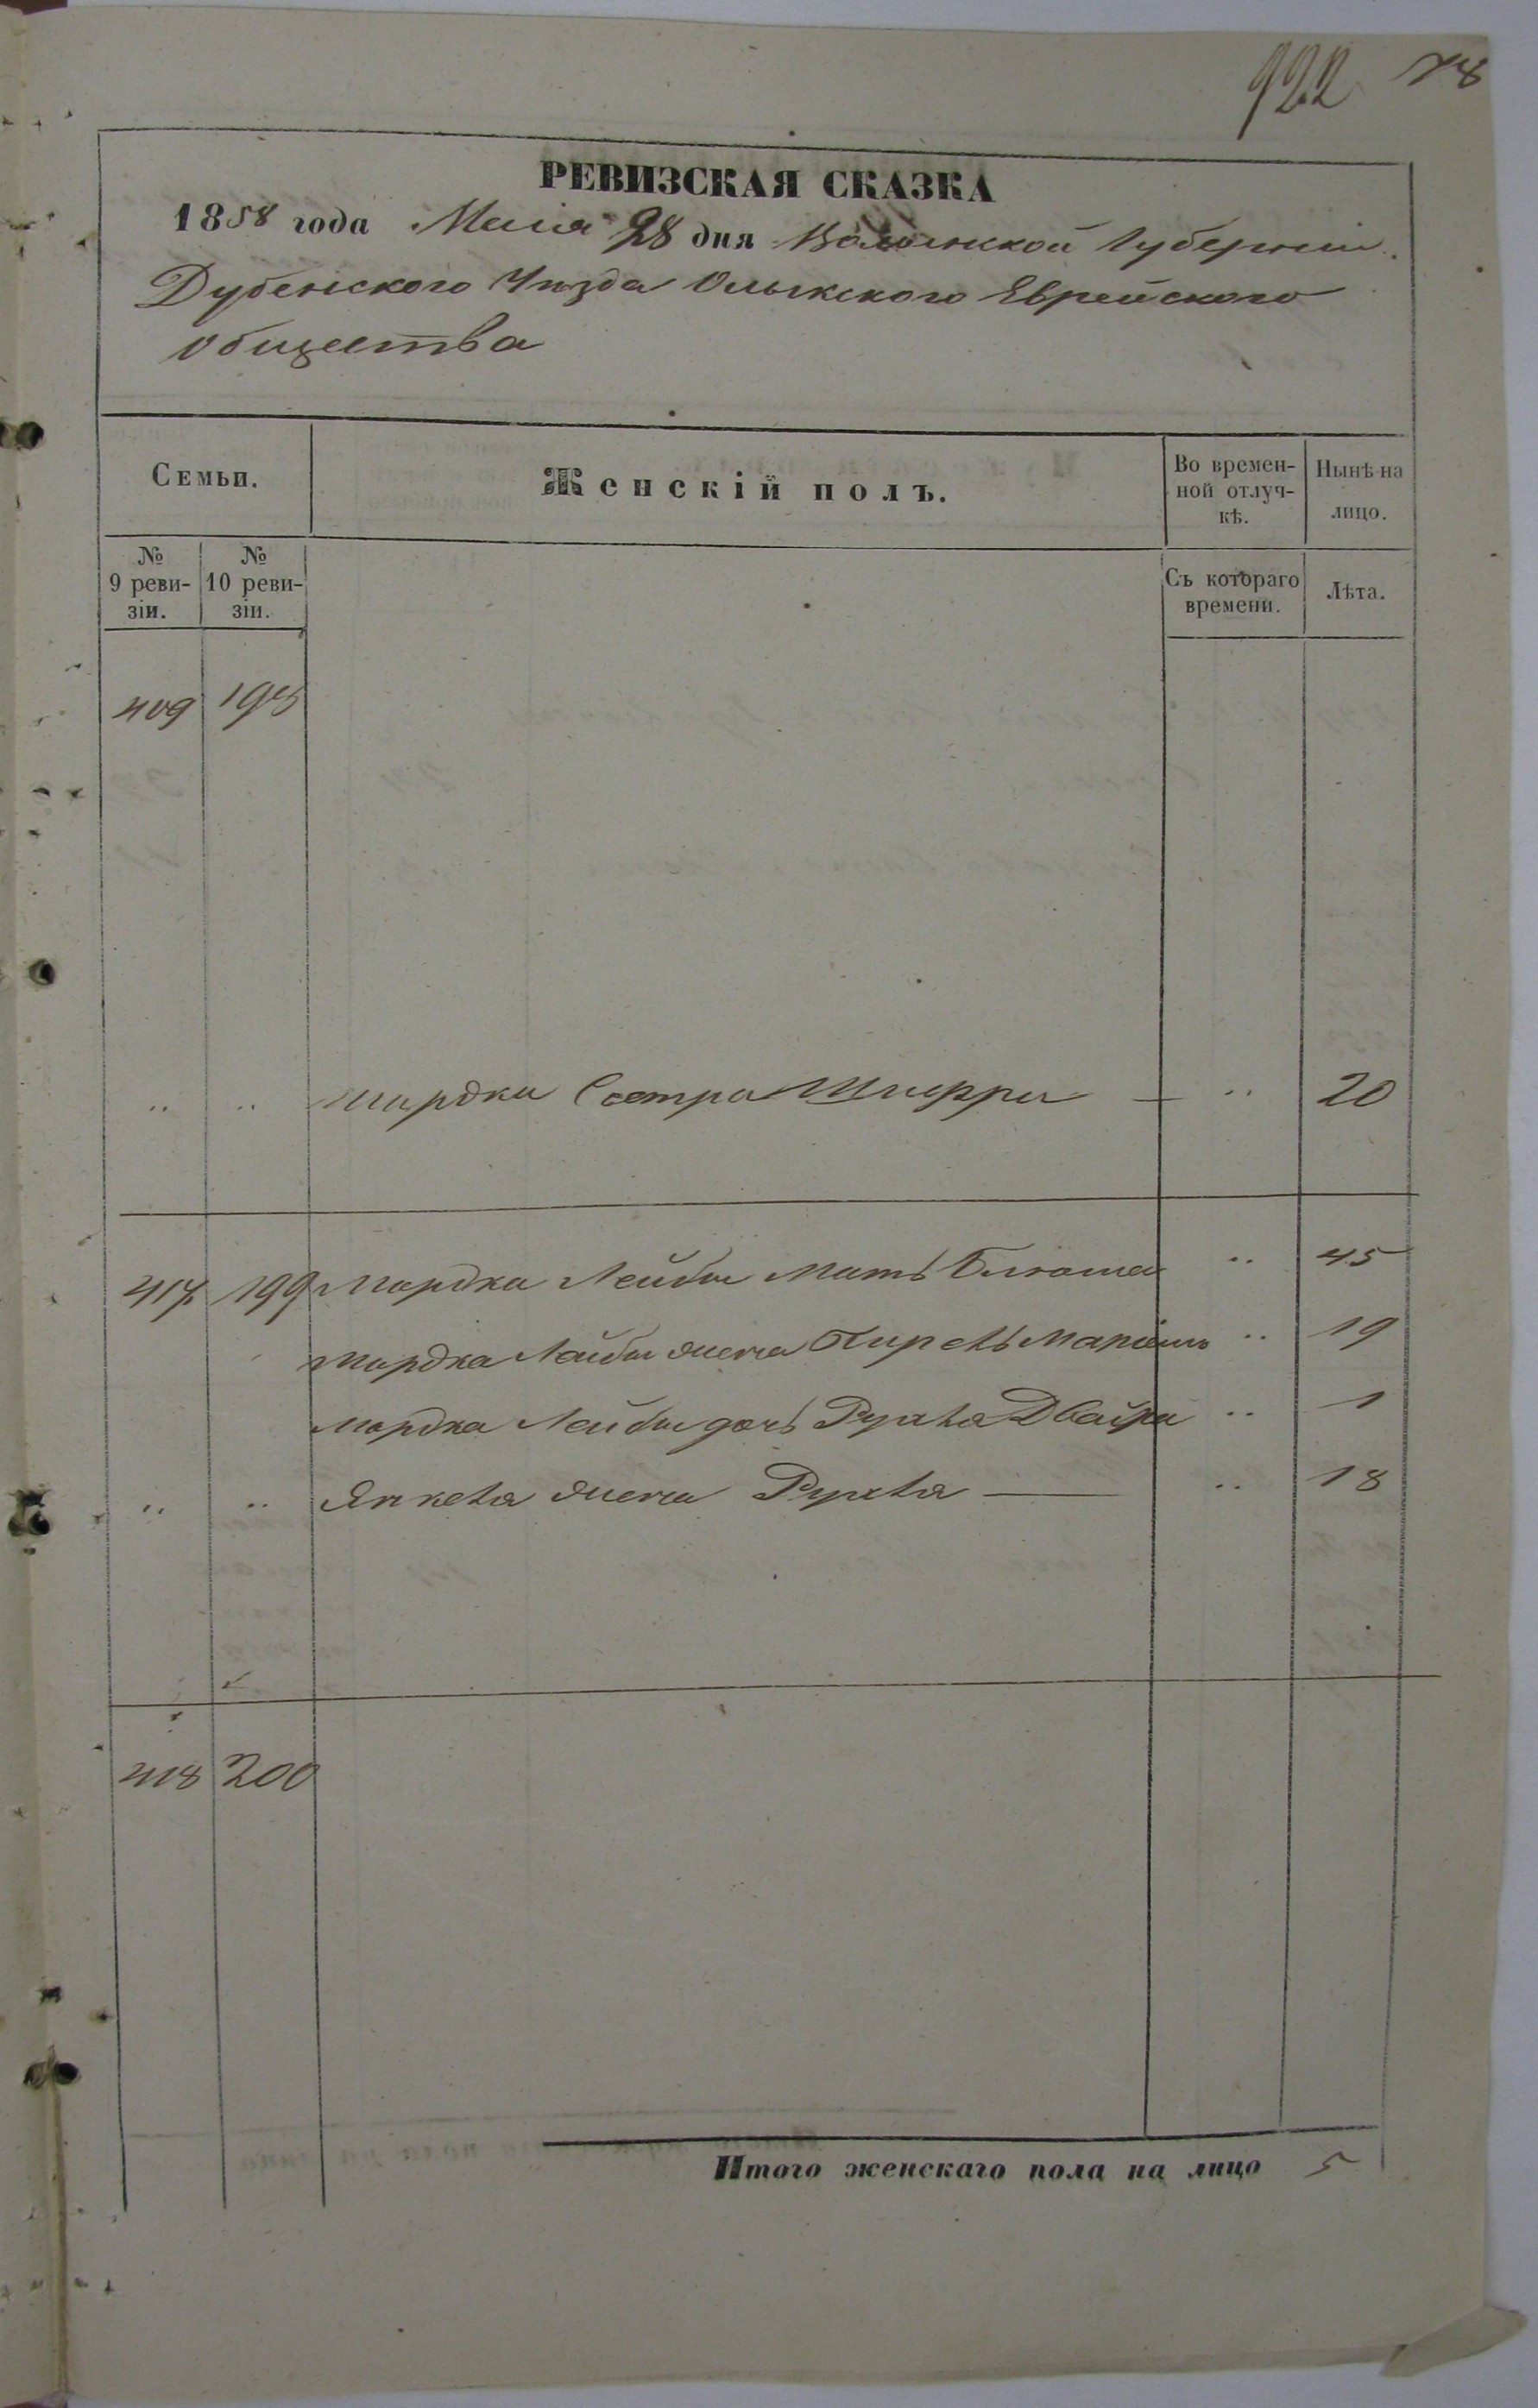 922 78
РЕВИЗСКАЯ СКАЗКА
1858 года Маія 28 дня Волынской Губерніи
Дубенского Уѣзда Олыкского Еврейского
общества
Семьи.
Женскій полъ.
Во времен-
ной отлуч-
кѣ.
Нынѣ на
лицо.
№
9 реви-
зіи.
№
10 реви-
зіи.
Съ котораго
времени.
Лѣта.
409 198
" " Мордка Сестра — " 20
417 199 Мордка Лейбы Мать Блюма " 45
Мордка Лейбы жена Маріемъ " 19
Мордка Лейбы дочь Рухля Двойра " 1
" " Янкеля жена Рухля — " 18
418 200
Итого женскаго пола на лицо 5